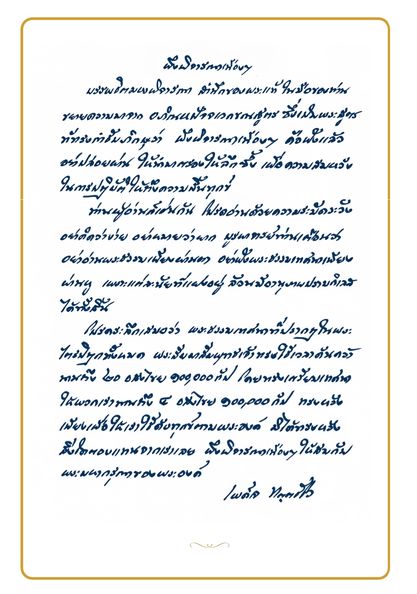 พึงพิจารณาเนืองๆ
บรรพชิตพึงพิจารณา สำนึกของพระแท้ ในมือของท่าน
ขยายความมาจาก อภิณหปัจจเวกขณสูตร ซึ่งเป็นพระสูตร
ที่ทรงกำชับภิกษุว่า พึงพิจารณาเนืองๆ คือฟังแล้ว
อย่าปล่อยผ่าน ให้นำมาตรองให้ลึกซึ้ง เพื่อความสมหวัง
ในการปฏิบัติให้ถึงความสิ้นทุกข์
ท่านผู้อ่านก็เช่นกัน โปรดอ่านด้วยความระมัดระวัง
อย่าคิดว่าง่าย อย่าหมายว่ายาก บูรพาจารย์ท่านเตือนว่า
อย่าอ่านพระธรรมเพียงผ่านตา อย่าฟังพระธรรมเทศนาเพียง
ผ่านหู เพราะแต่ละนัยที่แฝงอยู่ ล้วนมีอานุภาพปราบกิเลส
ได้ทั้งสิ้น
โปรดระลึกเสมอว่า พระธรรมเทศนาที่ปรากฏในพระ
ไตรปิฎกทั้งหมด พระสัมมาสัมพุทธเจ้าทรงใช้เวลาค้นคว้า
นานถึง ๒๐ อสงไขย ๑๐๐,๐๐๐ กัป โดยทรงเตรียมเทศนา
ให้พวกเรานานถึง ๔ อสงไขย ๑๐๐,๐๐๐ กัป ทรงหวัง
เพียงเพื่อให้เราได้ดับทุกข์ตามพระองค์ มิได้ทรงหวัง
สิ่งใดตอบแทนจากเราเลย พึงพิจารณาเนืองๆ ให้สมกับ
พระมหากรุณาของพระองค์